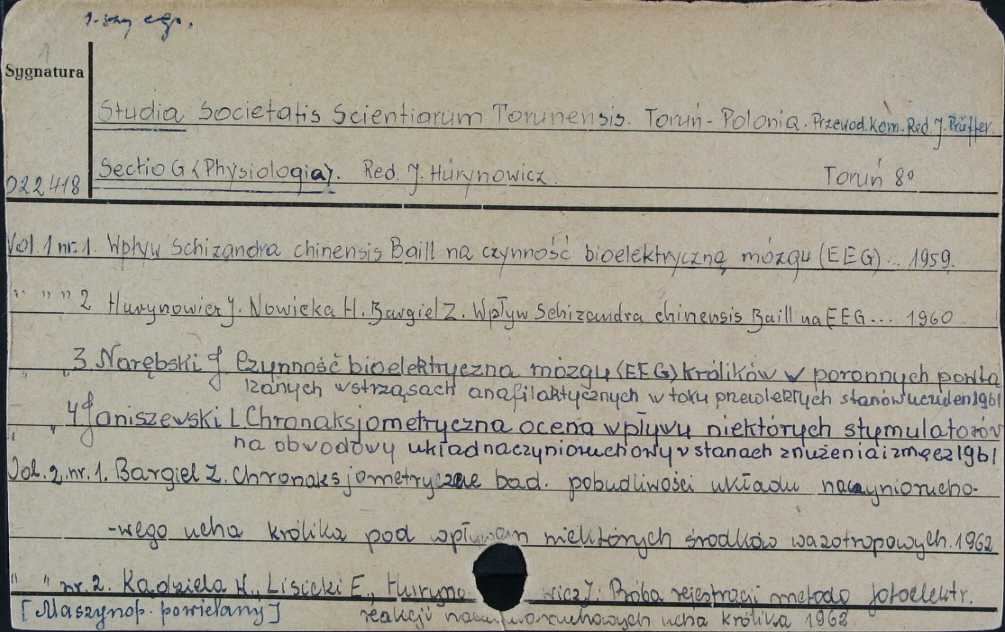 1-szy egz.
1
Sygnatura
Studia Societatis Scientiarum Torunensis. Toruń - Polonia. Przewod. kom. Red J. Prüffer.
022418 Sectio G (Physiologia). Red. J. Hurynowicz. Toruń 8°
Vol. 1 nr. 1. Wpływ Schizandra chinensis Baill na czynność bioelektryczną mózgu (EEG)... 1959.
" " " 2 Hurynowicz J. Nowicka H. Bargiel Z. Wpływ Schizandra chinensis Baill na EEG... 1960
" " 3. Narębski J. Czynność bioelektryczna mózgu (EEG) królików w poronnych powta
rzanych wstrząsach anafilaktycznych w toku przewlekłych stanów uczulen 1961
" " 4 Janiszewski L Chronaksjometryczna ocena wpływu niektórych stymulatorów
na obwodowy układ naczynioruchowy w stanach znużenia i zmęcz 1961
Vol. 2. nr. 1. Bargiel Z. Chronaksjometryczne bad. pobudliwości układu naczyniorucho-
-wego ucha królika pod wpływem niektórych środków wazotropowych. 1962
" " nr. 2. Kądziela H., Lisicki E., Huryno wicz J. Próba rejestracji metodą fotoelektr.
[Maszynop. powielany] reakcji naczynioruchowych ucha królika 1962